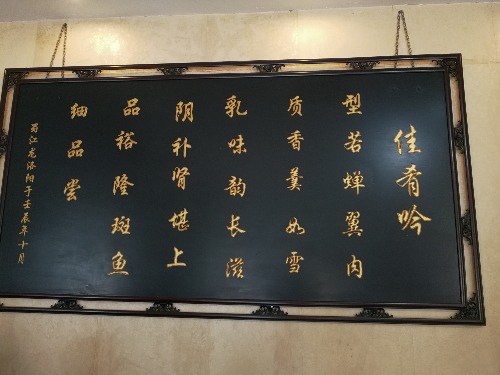 佳肴吟
型若蝉翼肉
质香羹如雪
乳味韵长滋
阴补肾堪上
品裕隆斑鱼
细品尝
蜀江龙洛翔于壬辰年十月